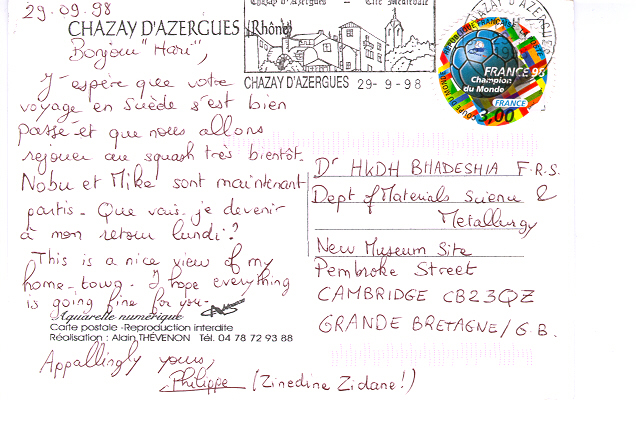 29-09-98
CHAZAY D'AZERGUES (Rhône)
Bonjour "Hari",
J'espère que votre
voyage en Suède s'est bien
passé et que nous allons
rejouer au squash très bientôt.
Nobu et Mike sont maintenant
partis. Que vais-je devenir
à mon retour lundi?
This is a nice view of my
home-town. I hope everything
is going fine for you.
Aquarelle numérique
Carte postale -Reproduction interdite
Réalisation : Alain THÉVENON Tél. 04 78 72 93 88
Appallingly yours,
Philippe (Zinedine Zidane!)
Chazay d'Azergues - Cité Médiévale
CHAZAY D'AZERGUES 29-9-98
CHAZAY D'AZERGUES
RÉPUBLIQUE FRANÇAISE LA POSTE
FRANCE 98
Champion
du Monde
FRANCE
3,00
COUPE DU MONDE
Dr HKDH BHADESHIA F.R.S.
Dept of Materials Science &
Metallurgy
New Museum Site
Pembroke Street
CAMBRIDGE CB23QZ
GRANDE BRETAGNE/G.B.